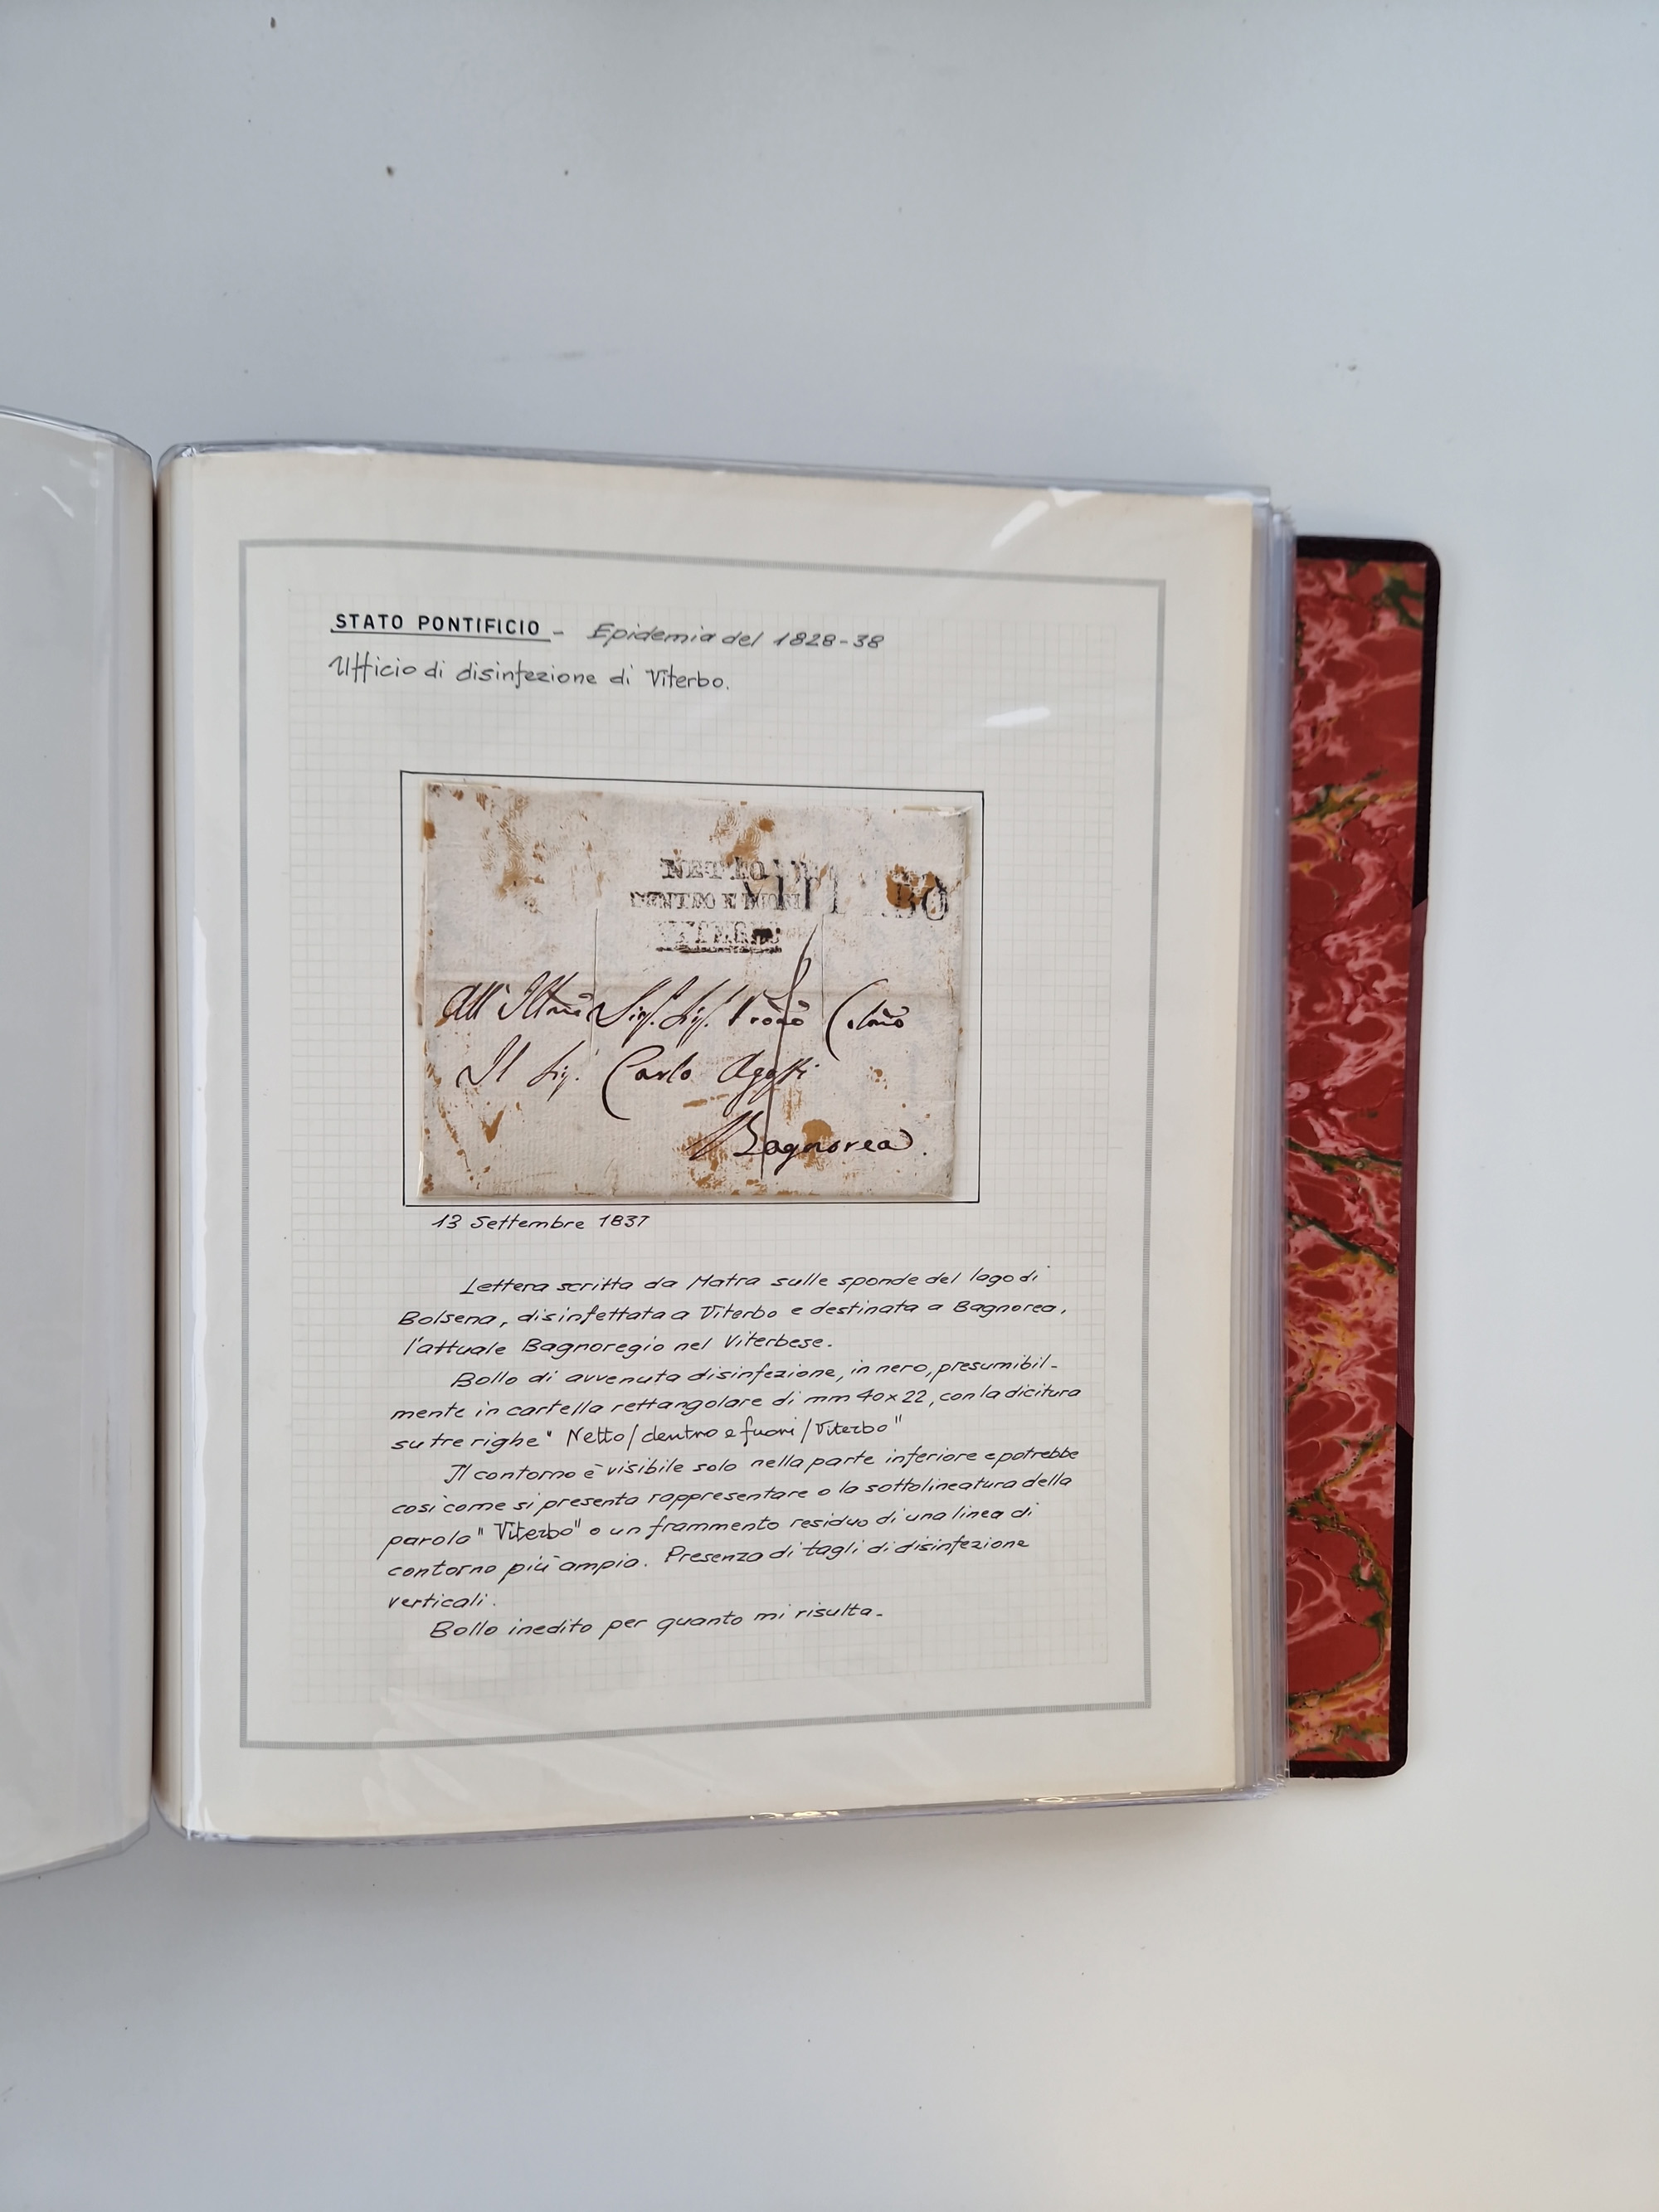 STATO PONTIFICIO - Epidemia del 1828-38
Ufficio di disinfezione di Viterbo.
NETTO
DENTRO E FUORI
VITERBO
VITERBO
All' Illmo Sig. Sig. Prone Colmo
Il Sig. Carlo Agosti
Bagnorea.
13 Settembre 1837
Lettera scritta da Matra sulle sponde del lago di
Bolsena, disinfettata a Viterbo e destinata a Bagnorea,
l'attuale Bagnoregio nel Viterbese.
Bollo di avvenuta disinfezione, in nero, presumibil-
mente in cartella rettangolare di mm 40x22, con la dicitura
su tre righe " Netto/dentro e fuori/Viterbo"
Il contorno è visibile solo nella parte inferiore e potrebbe
così come si presenta rappresentare o la sottolineatura della
parola "Viterbo" o un frammento residuo di una linea di
contorno più ampio. Presenza di tagli di disinfezione
verticali.
Bollo inedito per quanto mi risulta.